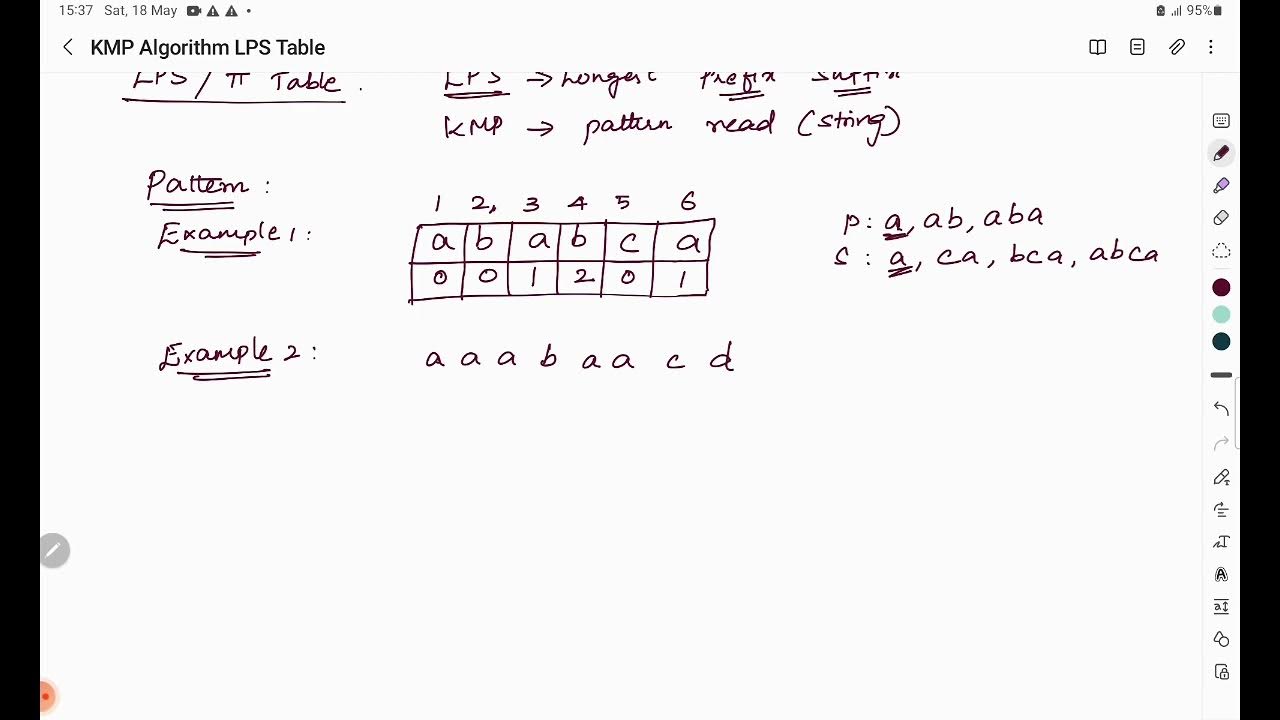 15:37 Sat, 18 May 95%
KMP Algorithm LPS Table
LPS / π Table . LPS → Longest prefix suffix
KMP → pattern read (string)
Pattern :
1 2, 3 4 5 6
Example 1 : a b a b c a
0 0 1 2 0 1
p : a, ab, aba
s : a, ca, bca, abca
Example 2 : a a a b a a c d